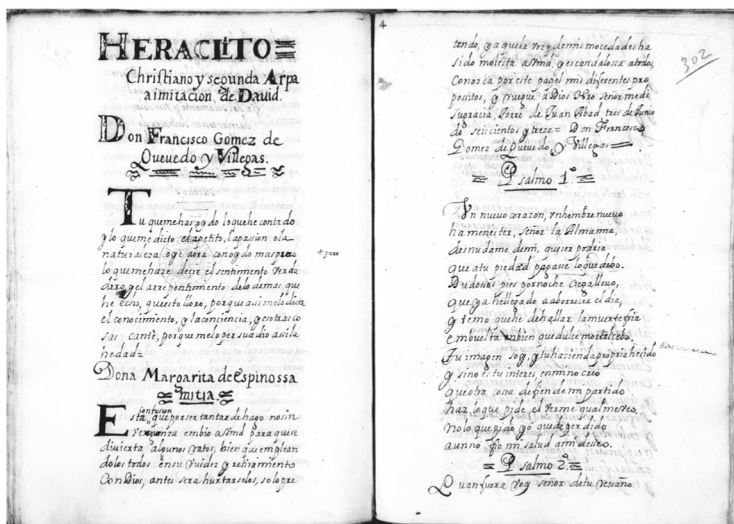 HERACLITO
Christiano y segunda Arpa
a imitacion de David.
Don Francisco Gomez de
Quevedo y Villegas.
Tu que me has oydo lo que he contado
y lo que me dicto el apetito, la passion o la
naturaleza, oye aora con oydo mas puro
lo que me hace decir el sentimiento verda
dero, y el arrepentimiento de lo demas que
he echo, que esto lloro, porque asi me lo dicta
el conocimiento, y la conciencia, y esotras co
sas cante, porque me lo persuadio asi la
hedad=
+ puro
Dona Margarita de Espinossa
mi tia
confusion
Esta, que por ser tantas de hago no sin
verguenza embio a Vmd para que se
divierta algunos ratos, bien que emplean
dolos todos en su viudez y retiramiento
con Dios, antes sera hurtarselos, solo pre
4
302
tendo, ya que la voz de mis mocedades ha
sido molesta a Vmd, y escandalossa a todos,
Conozca por este papel mis diferentes pro
positos, y ruegue a Dios Nro señor me de
su gracia, Torre de Juan Abad tres de Junio
de seiscientos y treze= Don Francisco
Gomez de Quevedo, y Villegas
Psalmo 1º
Un nuevo corazon, un hombre nuevo
ha menester, Señor la Alma mia,
desnudame de mi, que ser podria
que a tu piedad pagasse lo que debo.
Dudosos pies por noche ciega llevo,
que ya he llegado a aborrecer el dia,
y temo que he de hallar la muerte fria
embuelta en bien que dulce mortal cebo.
Tu imagen soy, y tu hazienda propria he sido
y si no es tu interes, en mi no creo
que otra cosa defiende mi partido
haz lo que pide el verme qual me veo.
No lo que pido yo que de perdido
aun no fio mi salud a mi desseo.
Psalmo 2º
Quan fuera voy señor de tu revaño